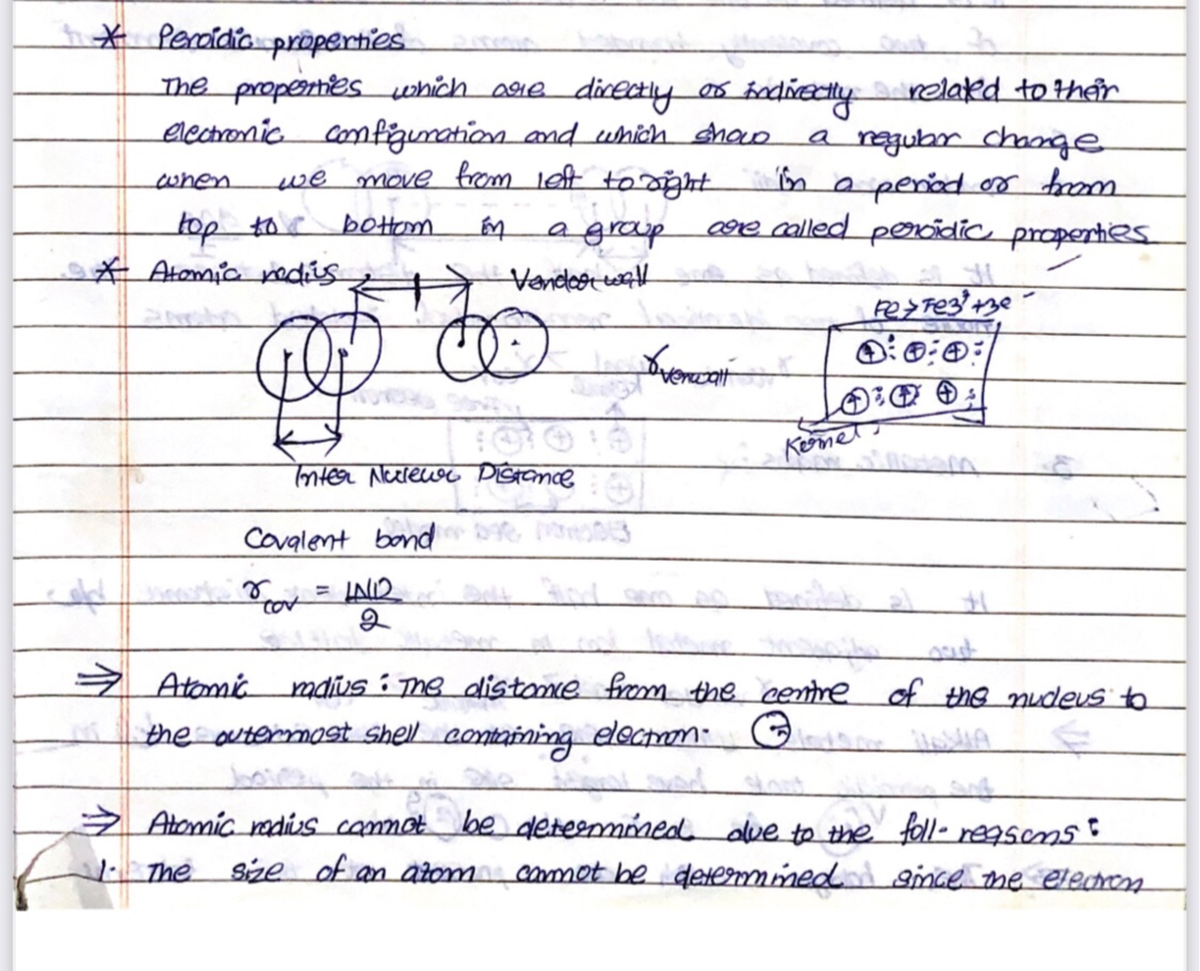 * Peroidic properties
The properties which are directly or indirectly related to their
electronic configuration and which show a regular change
when we move from left to right in a period or from
top to bottom in a group are called peroidic properties
* Atomic radius
Vandar wall
Fe > Fe3+ + 3e-
r verwall
Kernel
Inter Nucleur Distance
Covalent bond
r cov = IND
2
⇒ Atomic radius : The distance from the centre of the nucleus to
the outermost shell containing electron.
⇒ Atomic radius cannot be determined due to the foll- reasons :
1. The size of an atom cannot be determined since the electron